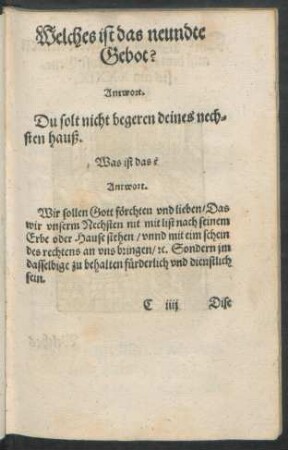 Welches ist das neundte
Gebot?
Antwort.
Du solt nicht begeren deines nech-
sten hauß.
Was ist das?
Antwort.
Wir sollen Gott förchten vnd lieben/Das
wir vnserm Nechsten nit mit list nach seinem
Erbe oder Hause stehen/vnnd mit eim schein
des rechtens an vns bringen/ꝛc. Sondern jm
dasselbige zu behalten fürderlich vnd dienstlich
sein.
C iiij Dise